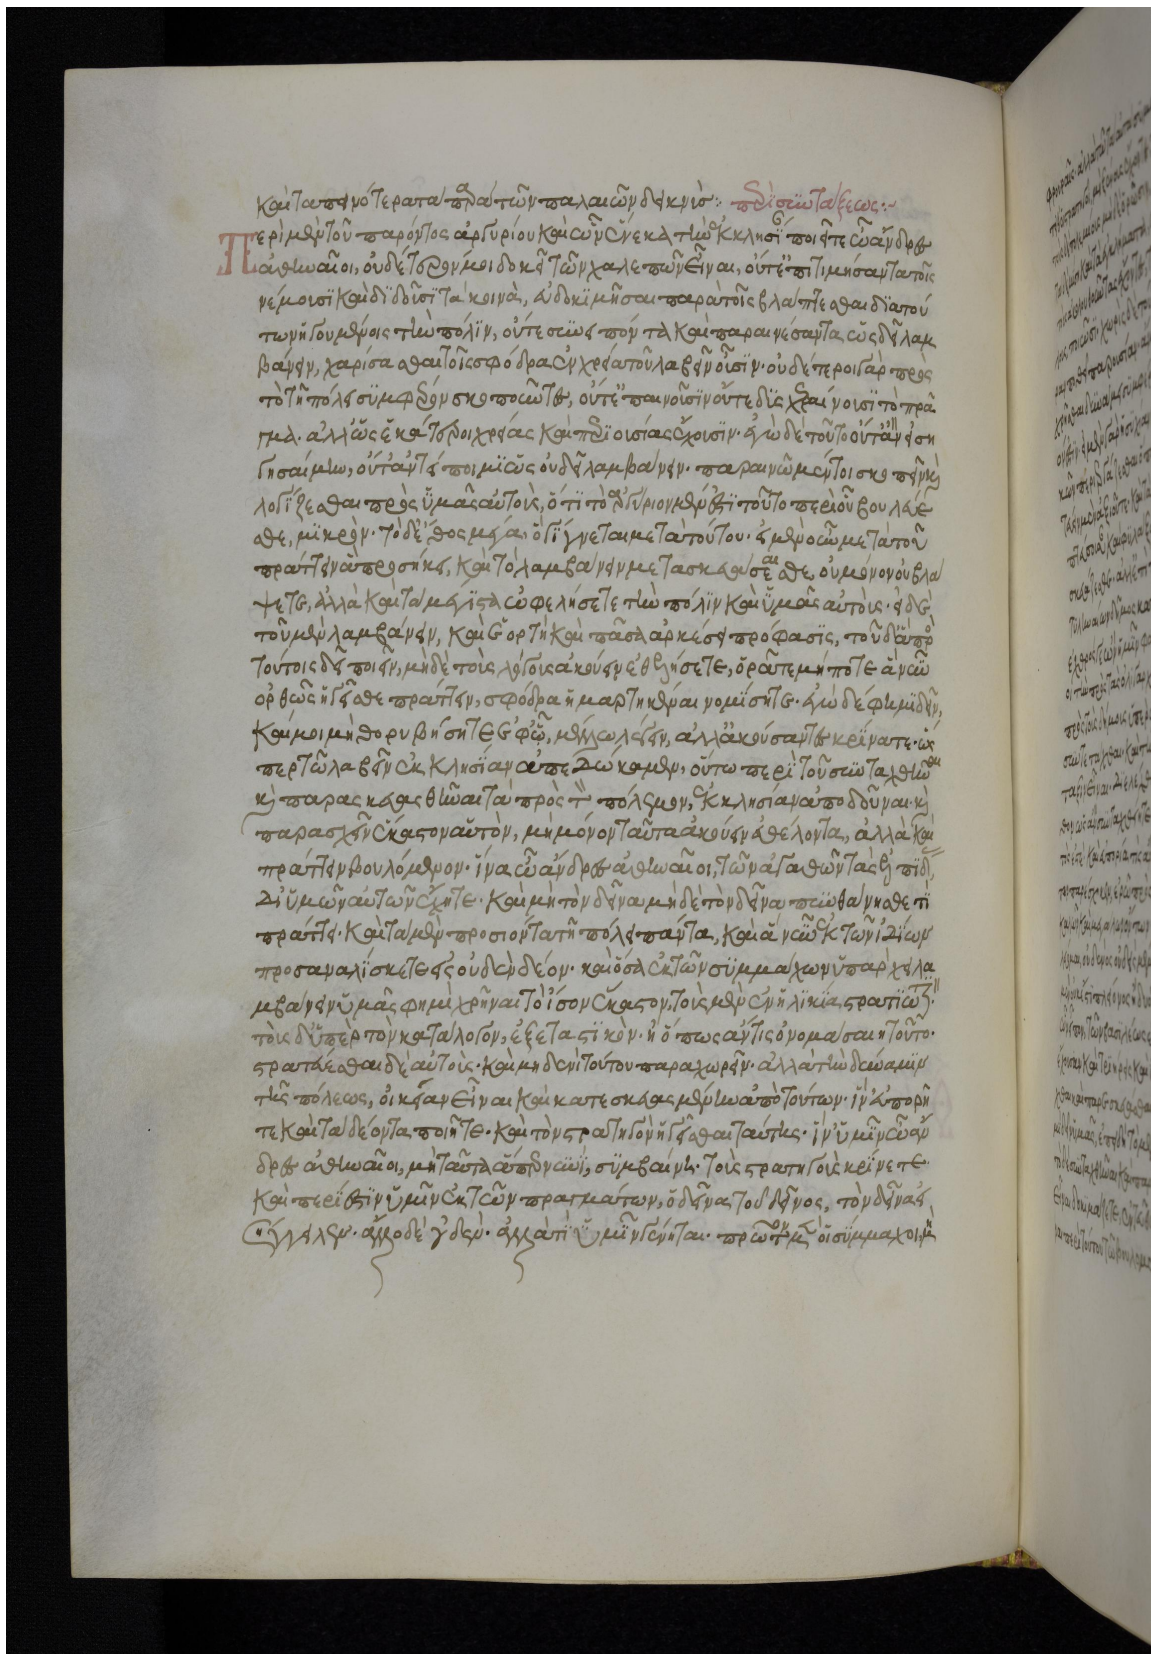 καὶ ταπεινότερα τὰ παρὰ τῶν παλαιῶν δείκνυσι: περὶ συντάξεως:
Περὶ μὲν τοῦ παρόντος ἀργυρίου καὶ οὗ ἕνεκα τὴν ἐκκλησίαν ποιεῖτε ὦ ἄνδρες
ἀθηναῖοι, οὐδέτερόν μοι δοκεῖ τῶν χαλεπῶν εἶναι, οὔτ' ἐπιτιμήσαντα τοῖς
νέμουσι καὶ διδοῦσι τὰ κοινὰ, εὐδοκιμῆσαι παρὰ τοῖς βλάπτεσθαι διὰ τού
των ἡγουμένοις τὴν πόλιν, οὔτε συνειπόντα καὶ παραινέσαντα ὡς δεῖ λαμ
βάνειν, χαρίσασθαι τοῖς σφόδρα ἐν χρείᾳ τοῦ λαβεῖν οὖσιν· οὐδέτεροι γὰρ πρὸς
τὸ τῆ πόλει συμφέρον σκοποῦντες, οὔτ' ἐπαινοῦσιν οὔτε δυσχεραίνουσι τὸ πρᾶ
γμα· ἀλλ' ὡς ἕκαστοι χρείας καὶ περιουσίας ἔχουσιν· ἐγὼ δὲ τοῦτο οὔτ' ἂν εἰση
γησαίμην, οὔτ' ἀντείποιμι ὡς οὐ δεῖ λαμβάνειν· παραινῶ μέντοι σκοπεῖν καὶ
λογίζεσθαι πρὸς ὑμᾶς αὐτοὺς, ὅτι τὸ ἀργύριον μέν ἐστι τοῦτο περὶ οὗ βουλεύε
σθε, μικρὸν· τὸ δ' ἔθος μέγα, ὃ γίγνεται μετὰ τούτου· εἰ μὲν οὖν μετὰ τοῦ
πράττειν ἃ προσήκει, καὶ τὸ λαμβάνειν κατασκευάσεσθε, οὐ μόνον οὐ βλά
ψετε, ἀλλὰ καὶ τὰ μέγιστα ὠφελήσετε τὴν πόλιν καὶ ὑμᾶς αὐτοὺς· εἰ δὲ
τοῦ μὲν λαμβάνειν, καὶ ἑορτὴ καὶ πᾶσα ἀρκέσει πρόφασις, τοῦ δ' ἃ πρὸς
τούτοις δεῖ ποιεῖν, μηδὲ τοὺς λόγους ἀκούειν ἐθελήσετε, ὁρᾶτε μήποτε ἃ νῦν
ὀρθῶς ἡγεῖσθε πράττειν, σφόδρα ἡμαρτηκέναι νομίσητε· ἐγὼ δέ φημι δεῖν,
καί μοι μὴ θορυβήσητε ἐφ' ᾧ, μέλλω λέγειν, ἀλλ' ἀκούσαντες κρίνατε· ὥσ
περ τῶ λαβεῖν ἐκκλησίαν ἀπεδώκαμεν, οὕτω περὶ τοῦ συνταχθῆναι
καὶ παρασκευασθῆναι τὰ πρὸς τὸν πόλεμον, ἐκκλησίαν ἀποδοῦναι· καὶ
παρασχεῖν ἕκαστον αὑτὸν, μὴ μόνον ταῦτα ἀκούειν ἐθέλοντα, ἀλλὰ καὶ
πράττειν βουλόμενον· ἵνα ὦ ἄνδρες ἀθηναῖοι, τῶν ἀγαθῶν τὰς ἐλπίδας
δι' ὑμῶν αὐτῶν ἔχητε· καὶ μὴ τὸν δεῖνα μηδὲ τὸν δεῖνα πυνθάνησθε τί
πράττει· καὶ τὰ μὲν προσιόντα τῆ πόλει πάντα, καὶ ἃ νῦν ἐκ τῶν ἰδίων
προσαναλίσκετε εἰς οὐδὲν δέον· καὶ ὅσα ἐκ τῶν συμμάχων ὑπάρχει λα
μβάνειν ὑμᾶς φημὶ χρῆναι τὸ ἴσον ἕκαστον, τοὺς μὲν ἐν ἡλικίᾳ στρατιωτικόν·
τοὺς δ' ὑπὲρ τὸν κατάλογον, ἐξεταστικὸν· ἢ ὅπως ἄν τις ὀνομάσαι τοῦτο·
στρατεύεσθαι δὲ αὐτοὺς· καὶ μηδενὶ τούτου παραχωρεῖν· ἀλλὰ τὴν δύναμιν
τῆς πόλεως, οἰκείαν εἶναι καὶ κατεσκευασμένην ἀπὸ τούτων· ἵν' εὐπορῆ
τε καὶ τὰ δέοντα ποιῆτε· καὶ τὸν στρατηγὸν ἡγεῖσθαι ταύτης· ἵν' ὑμῖν ὦ ἄν
δρες ἀθηναῖοι, μὴ ταῦτα ἅπερ νυνὶ, συμβαίνῃ· τοὺς στρατηγοὺς κρίνετε
καὶ περίεστιν ὑμῖν ἐκ τῶν πραγμάτων, ὁ δεῖνα τοῦ δεῖνος, τὸν δεῖνα εἰ
σήγγειλεν· ἄλλο δὲ οὐδέν· ἀλλὰ τί ὑμῖν γένηται· πρῶτον μὲν οἱ σύμμαχοι, μὴ